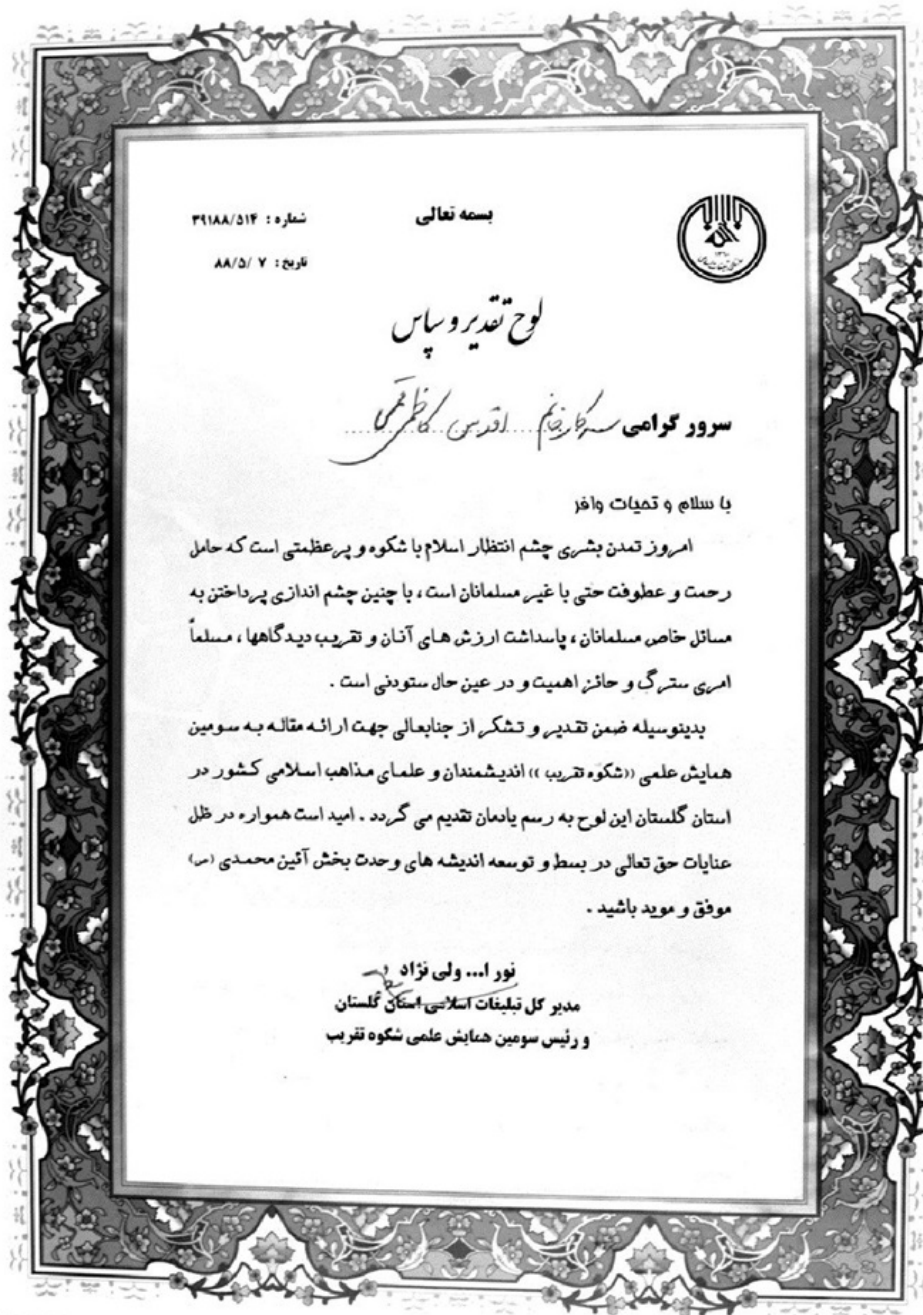 بسمه تعالی
شماره : ۳۹۱۸۸/۵۱۴
تاریخ : ۷ /۸۸/۵
لوح تقدیر و سپاس
سرور گرامی سرکار خانم اقدس کاظمی قمی
با سلام و تحیات وافر
امروز تمدن بشری چشم انتظار اسلام با شکوه و پرعظمتی است که حامل
رحمت و عطوفت حتی با غیر مسلمانان است ، با چنین چشم اندازی پرداختن به
مسائل خاص مسلمانان ، پاسداشت ارزش های آنان و تقریب دیدگاهها ، مسلماً
امری سترگ و حائز اهمیت و در عین حال ستودنی است .
بدینوسیله ضمن تقدیر و تشکر از جنابعالی جهت ارائه مقاله به سومین
همایش علمی ((شکوه تقریب )) اندیشمندان و علمای مذاهب اسلامی کشور در
استان گلستان این لوح به رسم یادمان تقدیم می گردد . امید است همواره در ظل
عنایات حق تعالی در بسط و توسعه اندیشه های وحدت بخش آئین محمدی (ص)
موفق و موید باشید .
نور ا... ولی نژاد
مدیر کل تبلیغات اسلامی استان گلستان
و رئیس سومین همایش علمی شکوه تقریب